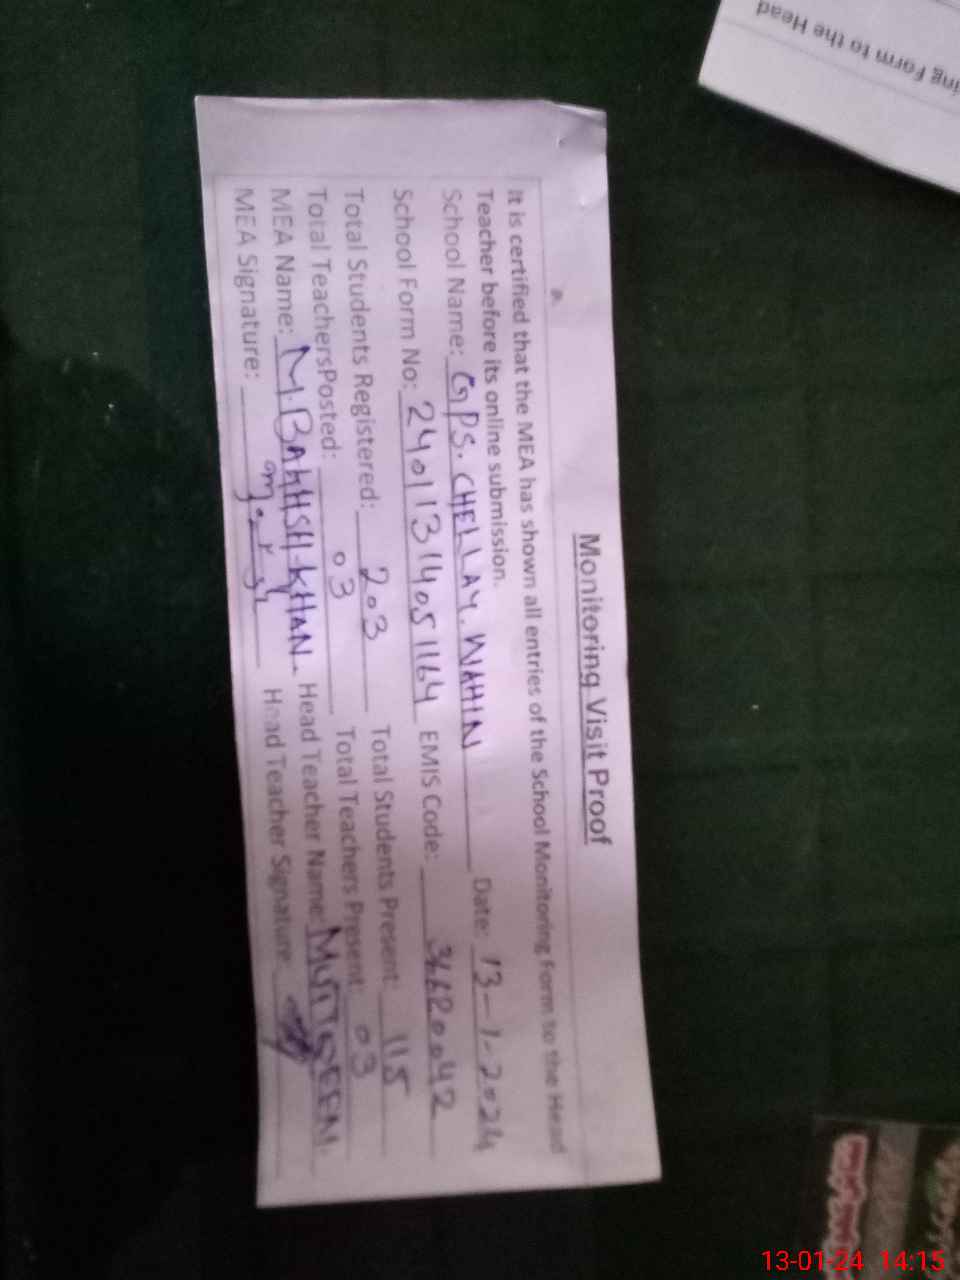 Monitoring Visit Proof
It is certified that the MEA has shown all entries of the School Monitoring Form to the Head
Teacher before its online submission.
School Name: GPS. CHELLAY. WAHIN Date: 13-1-2024
School Form No: 24011314051164 EMIS Code: 36620042
Total Students Registered: 203 Total Students Present: 115
Total TeachersPosted: 03 Total Teachers Present: 03
MEA Name: M. BAKHSH KHAN. Head Teacher Name:
MEA Signature: Head Teacher Signature:
ing Form to the Head
13-01-24 14:15